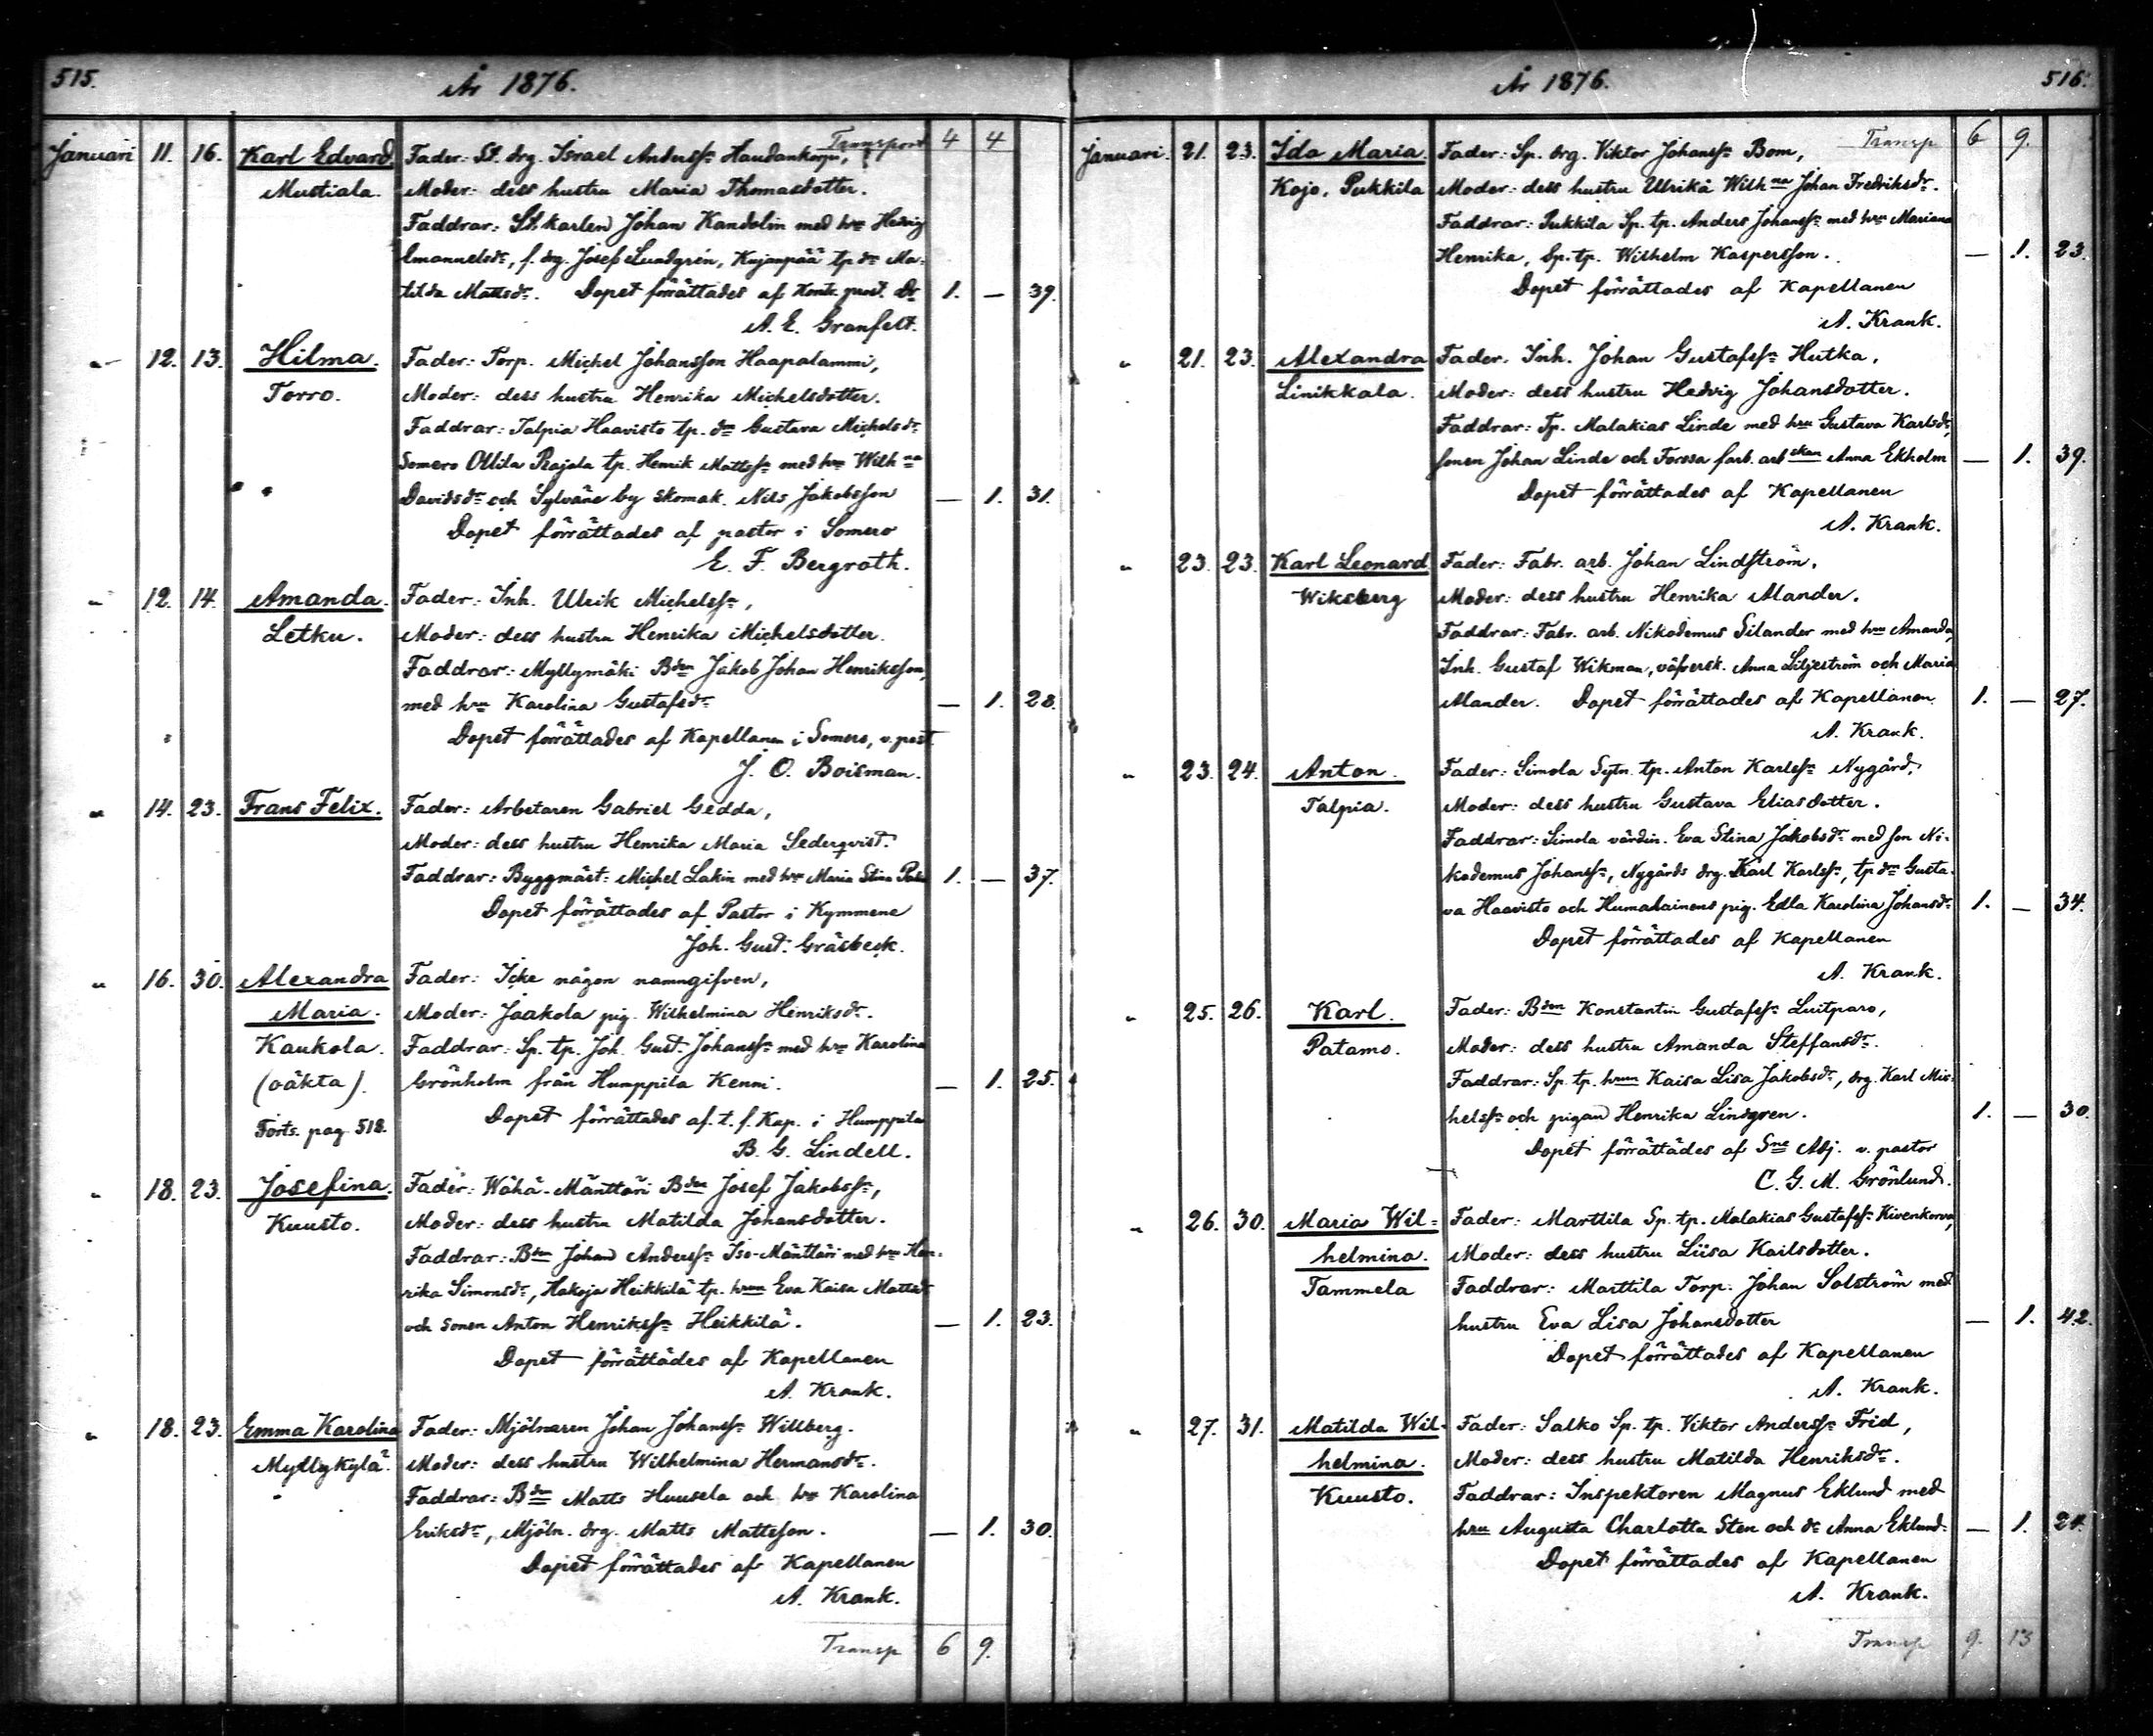 515.
År 1876.
Transport 4 4
Januari 11. 16. Karl Edvard. Fader: St. drg. Israel Anderss: Haudankorpi,
Mustiala. Moder: dess hustru Maria Thomasdotter.
Faddrar: St. karlen Johan Kandolin med hru Hedvig
Emanuelsdr, f. drg. Josef Lundgrén, Kujanpää tp dr Ma-
tilda Mattsdr. Dopet förättades af Kontr. prost. Dr 1. — 39.
A. E. Granfelt.
„ 12. 13. Hilma. Fader: Torp. Michel Johansson Haapalammi,
Torro. Moder: dess hustru Henrika Michelsdotter.
Faddrar: Talpia Haavisto tp. dr Gustava Michelsdr
Somero Ollila Rajala tp. Henrik Mattss: med hru Wilhna
Davidsdr och Sylväne by skomak. Nils Jakobsson — 1. 31.
Dopet förrättades af pastor i Somero
E. F. Bergroth.
„ 12. 14. Amanda. Fader: Inh. Ulrik Michelss:,
Letku. Moder: dess hustru Henrika Michelsdotter.
Faddrar: Myllymäki Bden Jakob Johan Henriksson,
med hru Karolina Gustafsdr — 1. 28.
Dopet förrättades af Kapellanen i Somero, v. past.
J. O. Boisman.
„ 14. 23. Frans Felix. Fader: Arbetaren Gabriel Gedda,
Moder: dess hustru Henrika Maria Sederqvist.
Faddrar: Byggmäst: Michel Lakin med hru Maria Stina 1. — 37.
Dopet förrättades af Pastor i Kymmene
Joh. Gust. Gräsbeck.
„ 16. 30. Alexandra Fader: Icke någon namngifven,
Maria. Moder: Jaakola pig. Wilhelmina Henriksdr.
Kaukola. Faddrar: Sp. tp. Joh. Gust. Johanss: med hru Karolina
(oäkta). Grönholm från Humppila Kenni. — 1. 25.
Forts. pag 518. Dopet förrättades af t. f. Kap. i Humppila
B. G. Lindell.
„ 18. 23. Josefina. Fader: Wähä-Mänttäri Bden Josef Jakobss:,
Kuusto. Moder: dess hustru Matilda Johansdotter.
Faddrar: Bden Johan Anderss: Iso-Mänttäri med hru Hen-
rika Simonsdr, Hakoja Heikkilä tp. hrun Eva Kaisa Mattsdr
och sonen Anton Henrikss: Heikkilä. — 1. 23.
Dopet förrättades af Kapellanen
A. Krank.
„ 18. 23. Emma Karolina Fader: Mjölnaren Johan Johanss: Willberg.
Myllykylä. Moder: dess hustru Wilhelmina Hermansdr.
Faddrar: Bden Matts Huusela och hru Karolina
Eriksdr, Mjöln. drg. Matts Mattsson. — 1. 30.
Dopet förrättades af Kapellanen
A. Krank.
Transp 6 9.
År 1876.
516.
Transp 6 9.
Januari. 21. 23. Ida Maria. Fader: Sp. drg. Viktor Johanss: Bom,
Kojo, Pukkila Moder: dess hustru Ulrika Wilhna Johan Fredriksdr.
Faddrar: Pukkila Sp. tp. Anders Johanss: med hru Mariana
Henrika, Sp. tp. Wilhelm Kaspersson. — 1. 23.
Dopet förrättades af Kapellanen
A. Krank.
„ 21. 23. Alexandra Fader. Inh. Johan Gustafss: Hutka,
Linikkala. Moder: dess hustru Hedvig Johansdotter.
Faddrar: Tp. Malakias Linde med hru Gustava Karlsdr,
sonen Johan Linde och Forssa farb. arbskan Anna Ekholm — 1. 39.
Dopet förrättades af Kapellanen
A. Krank.
„ 23. 23. Karl Leonard Fader: Fabr. arb. Johan Lindström,
Wiksberg Moder: dess hustru Henrika Mander.
Faddrar: Fabr. arb. Nikodemus Silander med hru Amanda,
Inh. Gustaf Wikman, väfversk. Anna Liljeström och Maria
Mander. Dopet förrättades af Kapellanen. 1. — 27.
A. Krank.
„ 23. 24. Anton. Fader: Simola Sytn. tp. Anton Karlss: Nygård,
Talpia. Moder: dess hustru Gustava Eliasdotter.
Faddrar: Simola värdin. Eva Stina Jakobsdr med son Ni-
kodemus Johanss:, Nygårds drg. Karl Karlss:, tp drn Gusta-
va Haavisto och Humalainens pig. Edla Karolina Johansdr 1. — 34.
Dopet förrättades af Kapellanen
A. Krank.
„ 25. 26. Karl. Fader: Bden Konstantin Gustafss: Luitparo,
Patamo. Moder: dess hustru Amanda Steffansdr.
Faddrar: Sp. tp. hrun Kaisa Lisa Jakobsdr, drg. Karl Mic-
helss: och pigan Henrika Lindgren. 1. — 30.
Dopet förrättades af Sne Adj. v. pastor
C. G. M. Grönlund.
„ 26. 30. Maria Wil= Fader: Marttila Sp. tp. Malakias Gustafss: Kivenkorva,
helmina. Moder: dess hustru Liisa Karlsdotter.
Tammela Faddrar: Marttila Torp. Johan Solström med
hustru Eva Lisa Johansdotter — 1. 42.
Dopet förrättades af Kapellanen
A. Krank.
„ 27. 31. Matilda Wil- Fader: Salko Sp. tp. Viktor Anderss: Frid,
helmina. Moder: dess hustru Matilda Henriksdr.
Kuusto. Faddrar: Inspektoren Magnus Eklund med
hru Augusta Charlotta Sten och dr Anna Eklund. — 1. 24.
Dopet förrättades af Kapellanen
A. Krank.
Transp 9. 13